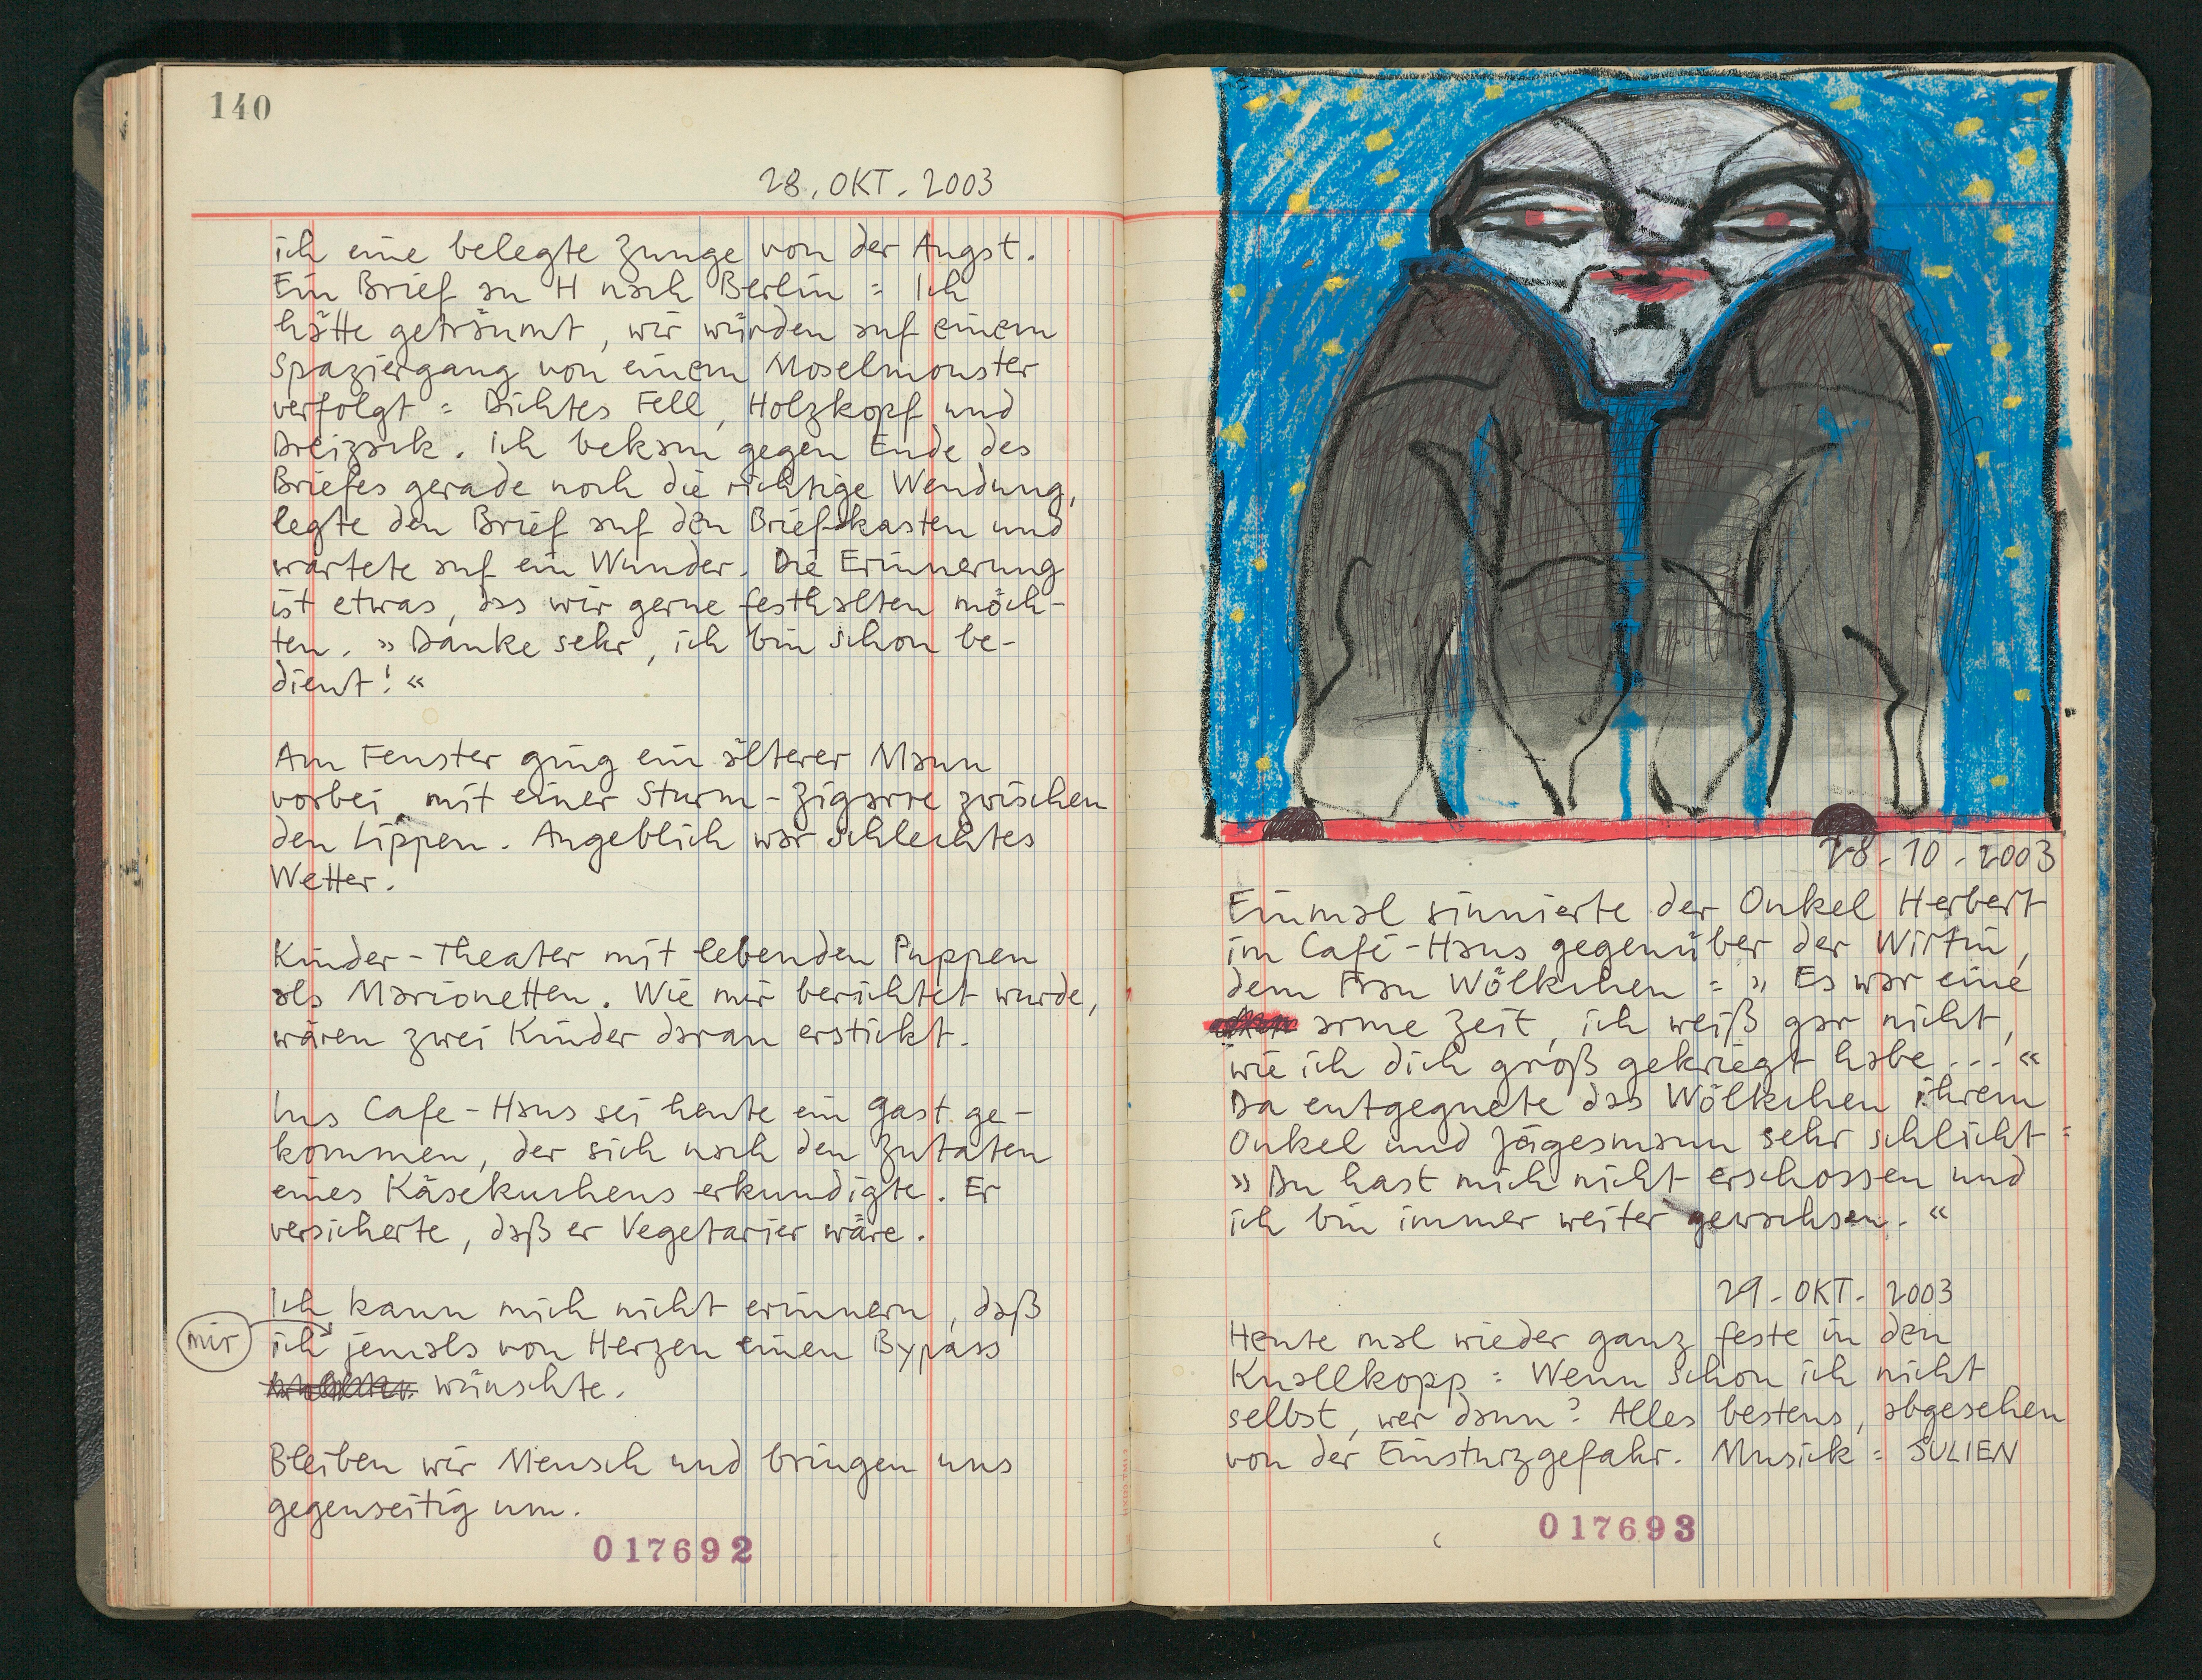 140
28. OKT. 2003
ich eine belegte Zunge von der Angst.
Ein Brief an H nach Berlin = Ich
hätte geträumt, wir würden auf einem
Spaziergang von einem Moselmonster
verfolgt = Dichtes Fell, Holzkopf und
Dreizack. Ich bekam gegen Ende des
Briefes gerade noch die richtige Wendung,
legte den Brief auf den Briefkasten und
wartete auf ein Wunder. Die Erinnerung
ist etwas, das wir gerne festhalten möch-
ten. » Danke sehr, ich bin schon be-
dient! «
Am Fenster ging ein älterer Mann
vorbei, mit einer Sturm-Zigarre zwischen
den Lippen. Angeblich war schlechtes
Wetter.
Kinder-Theater mit lebenden Puppen
als Marionetten. Wie mir berichtet wurde,
wären zwei Kinder daran erstickt.
Ins Cafe-Haus sei heute ein Gast ge-
kommen, der sich nach den Zutaten
eines Käsekuchens erkundigte. Er
versicherte, daß er Vegetarier wäre.
Ich kann mich nicht erinnern, daß
mir ich jemals von Herzen einen Bypass
wünschte.
Bleiben wir Mensch und bringen uns
gegenseitig um.
017692
28-10-2003
Einmal sinnierte der Onkel Herbert
im Café-Haus gegenüber der Wirtin,
dem Frau Wölkchen = » Es war eine
arme Zeit, ich weiß gar nicht,
wie ich dich groß gekriegt habe ... «
Da entgegnete das Wölkchen ihrem
Onkel und Jägesmann sehr schlicht =
» Du hast mich nicht erschossen und
ich bin immer weiter gewachsen. «
29-OKT-2003
Heute mal wieder ganz feste in den
Knallkopp = Wenn schon ich nicht
selbst, wer dann? Alles bestens, abgesehen
von der Einsturzgefahr. Musick = SULIEN
017693